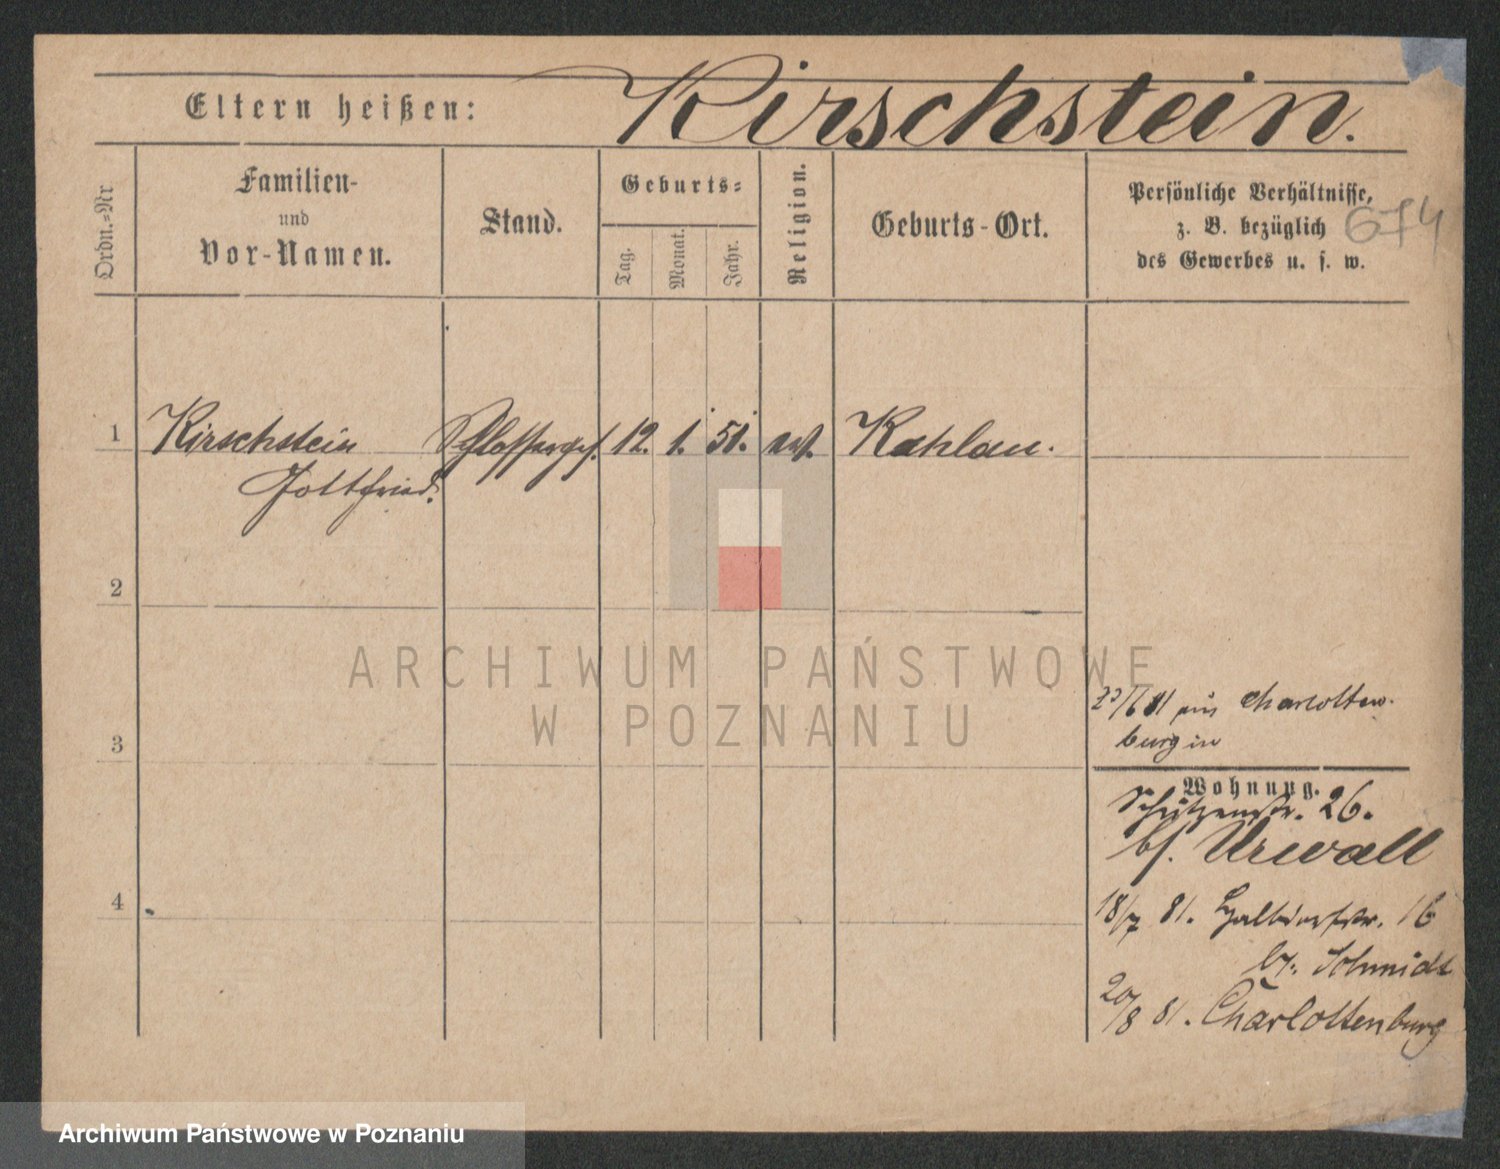 Eltern heißen: Kirschstein.
Ordn.=Nr
Familien-
und
Vor-Namen.
Stand.
Geburts=
Tag. Monat. Jahr.
Religion.
Geburts-Ort.
Persönliche Verhältnisse,
z. B. bezüglich
des Gewerbes u. s. w.
674
1 Kirschstein Schlosserges. 12. 1. 51. ev. Kahlau.
Gottfried.
2
ARCHIWUM PAŃSTWOWE
W POZNANIU
3
/6 81 aus Charlotten-
burg in
Wohnung.
Schützenstr. 26.
bs. Urwall
4
18/7 81. 16
bs. Schmidt
20/8 81. Charlottenburg
Archiwum Państwowe w Poznaniu